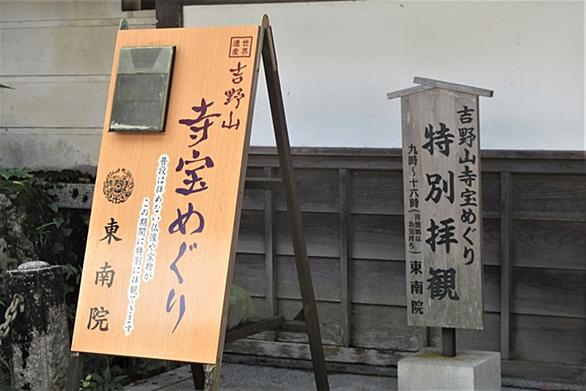 世界
遺産
吉野山
寺宝めぐり
普段は拝めない仏像や宝物が
この期間に特別に拝観できます
東南院
吉野山寺宝めぐり
特別拝観
九時〜十六時
東南院